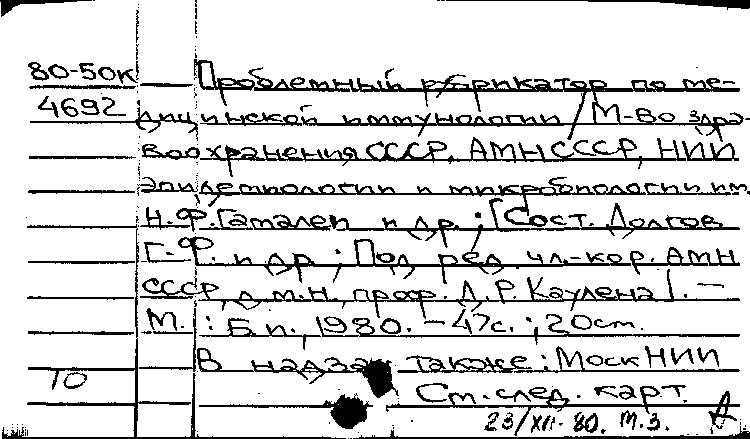 80-50к Проблемный рубрикатор по ме-
4692 дицинской иммунологии / М-во здра-
воохранения СССР, АМН СССР, НИИ
эпидемиологии и микробиологии им.
Н.Ф. Гамалеи и др. ; [Сост. Долгов
Г.Ф. и др. ; Под ред. чл.-кор. АМН
СССР, д.м.н., проф. Д.Р. Каулена]. —
М. : Б.и., 1980. — 47с. ; 20 cm.
10 В надзаг. также: Моск НИИ
См. след. карт.
23/XII-80. м.з.